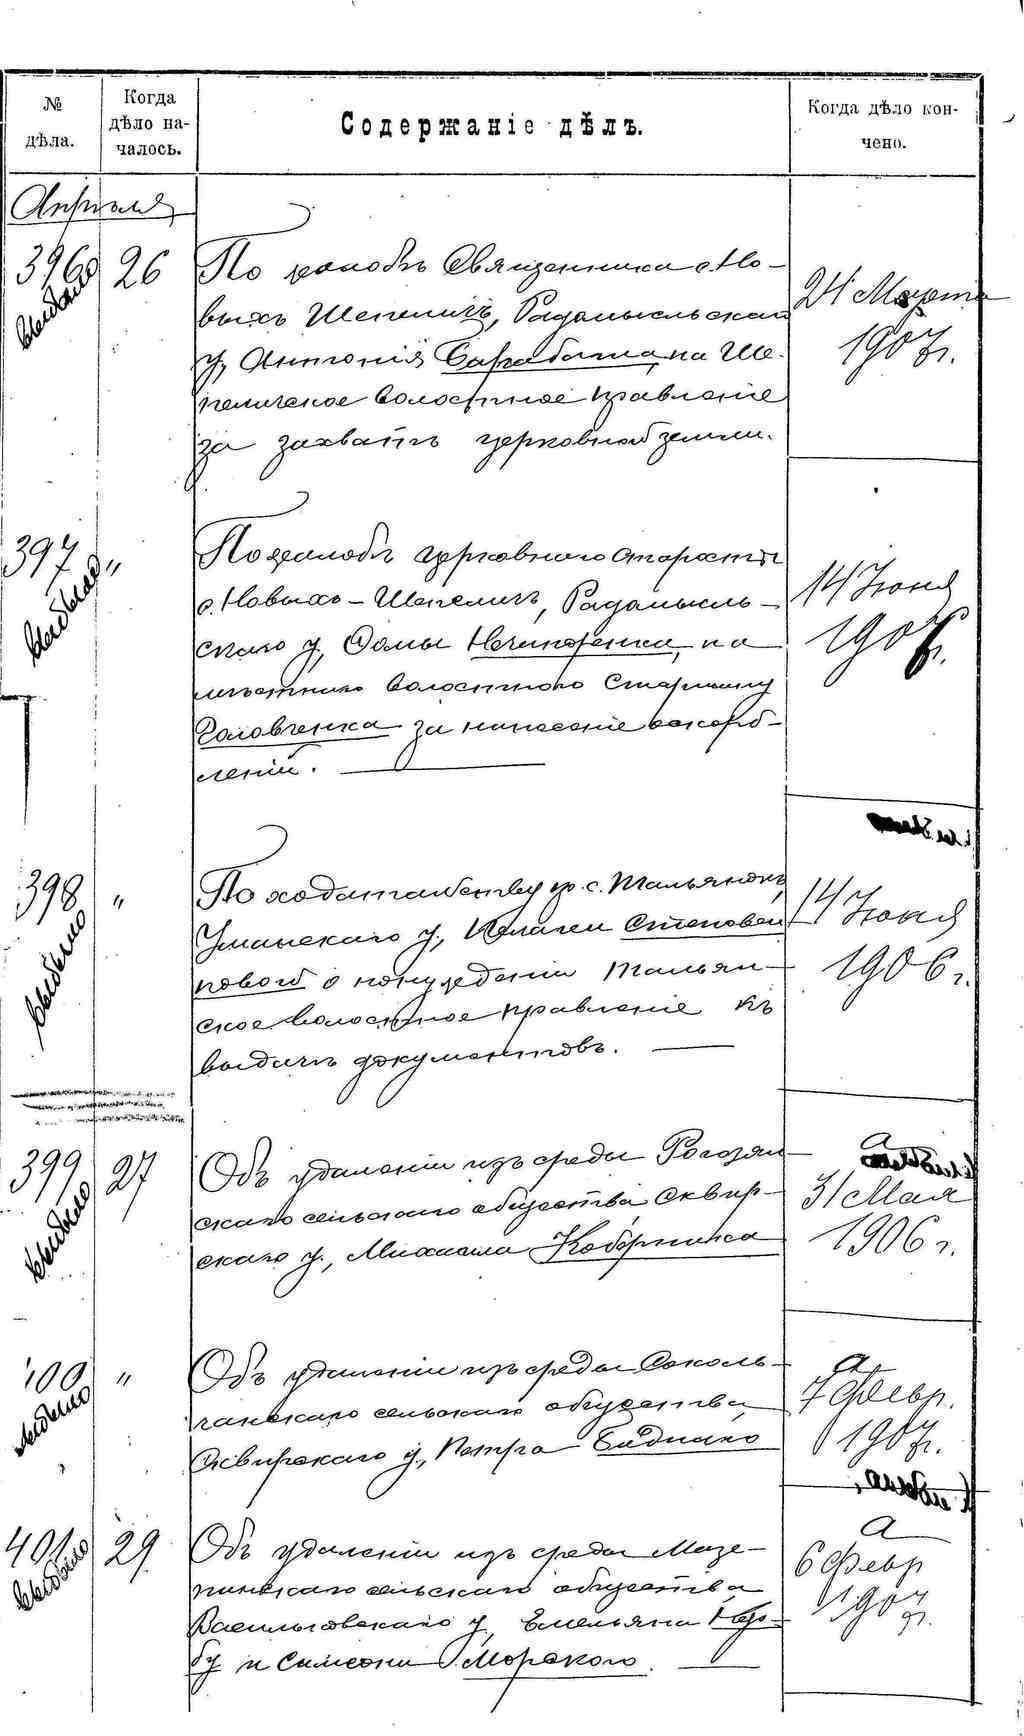 № дѣла.
Когда дѣло на-
чалось.
Содержаніе дѣлъ.
Когда дѣло кон-
чено.
Апрѣля
396 выбыло
26
По жалобѣ Священника с. Но-
выхъ Шепеличъ, Радомысльскаго
у, Антонія Барабаша, на Ше-
пеличское волостное правленіе
за захватъ церковной земли.
24 Марта
1907 г.
397 выбыло
"
По жалобѣ церковнаго старосты
с. Новыхъ-Шепеличъ, Радомысль-
скаго у, Фомы Нечипоренка, на
мѣстнаго волостного Старшину
Головченка за нанесеніе оскорб-
леній.
14 Іюня
190 г.
398 выбыло
"
По ходатайству кр. с. Тальянокъ,
Уманскаго у, Пелагеи
о понужденіи Тальян-
ское волостное правленіе къ
выдачѣ документовъ.
14 Іюня
1906 г.
399 выбыло
27
Объ удаленіи изъ среды
скаго сельскаго общества Сквир-
скаго у, Михаила Коберника
а
31 Мая
1906 г.
400 выбыло
"
Объ удаленіи изъ среды Соколь-
чанскаго сельскаго общества
Сквирскаго у, Петра
а
7 Февр.
1907 г.
401 выбыло
29
Объ удаленіи изъ среды Мазе-
пинскаго сельскаго общества
Васильковскаго у, Емельяна
и Симеона Морского.
а
6 Февр
1907 г.